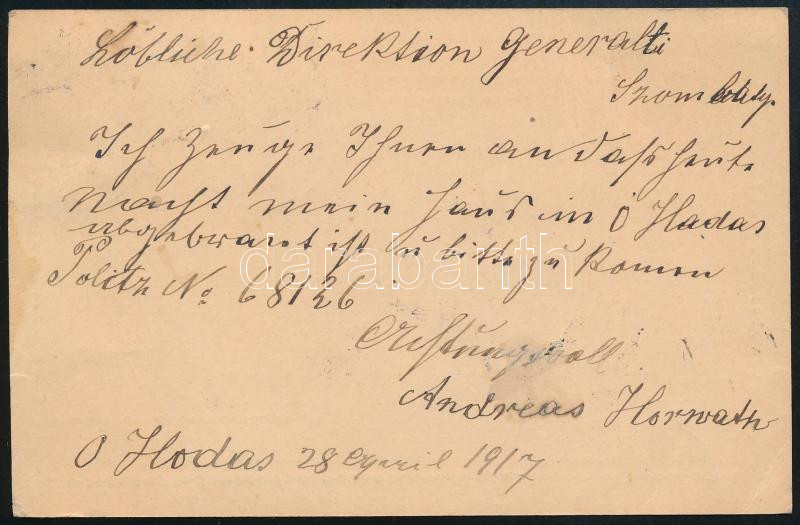 Löbliche Direktion Generalti
Szombathy.
Ich Zeuge Ihnen an daſs heute
Nacht mein Haus in O Hadas
abgebrant ist u bitte zu komen
Politz No 68126
Achtungsvoll
Andreas Horwath
O Hodas 28 April 1917
darabanth